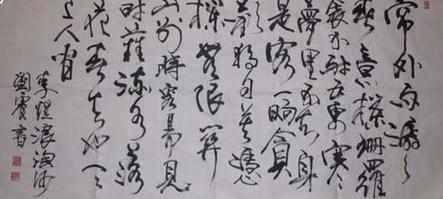 帘外雨潺々
春意闌珊羅
衾不耐五更寒
夢里不知身
是客一晌貪
歡獨自莫憑
欄無限江
山別時容易見
時難流水落
花春去也天
上人間
李煜浪淘沙
書